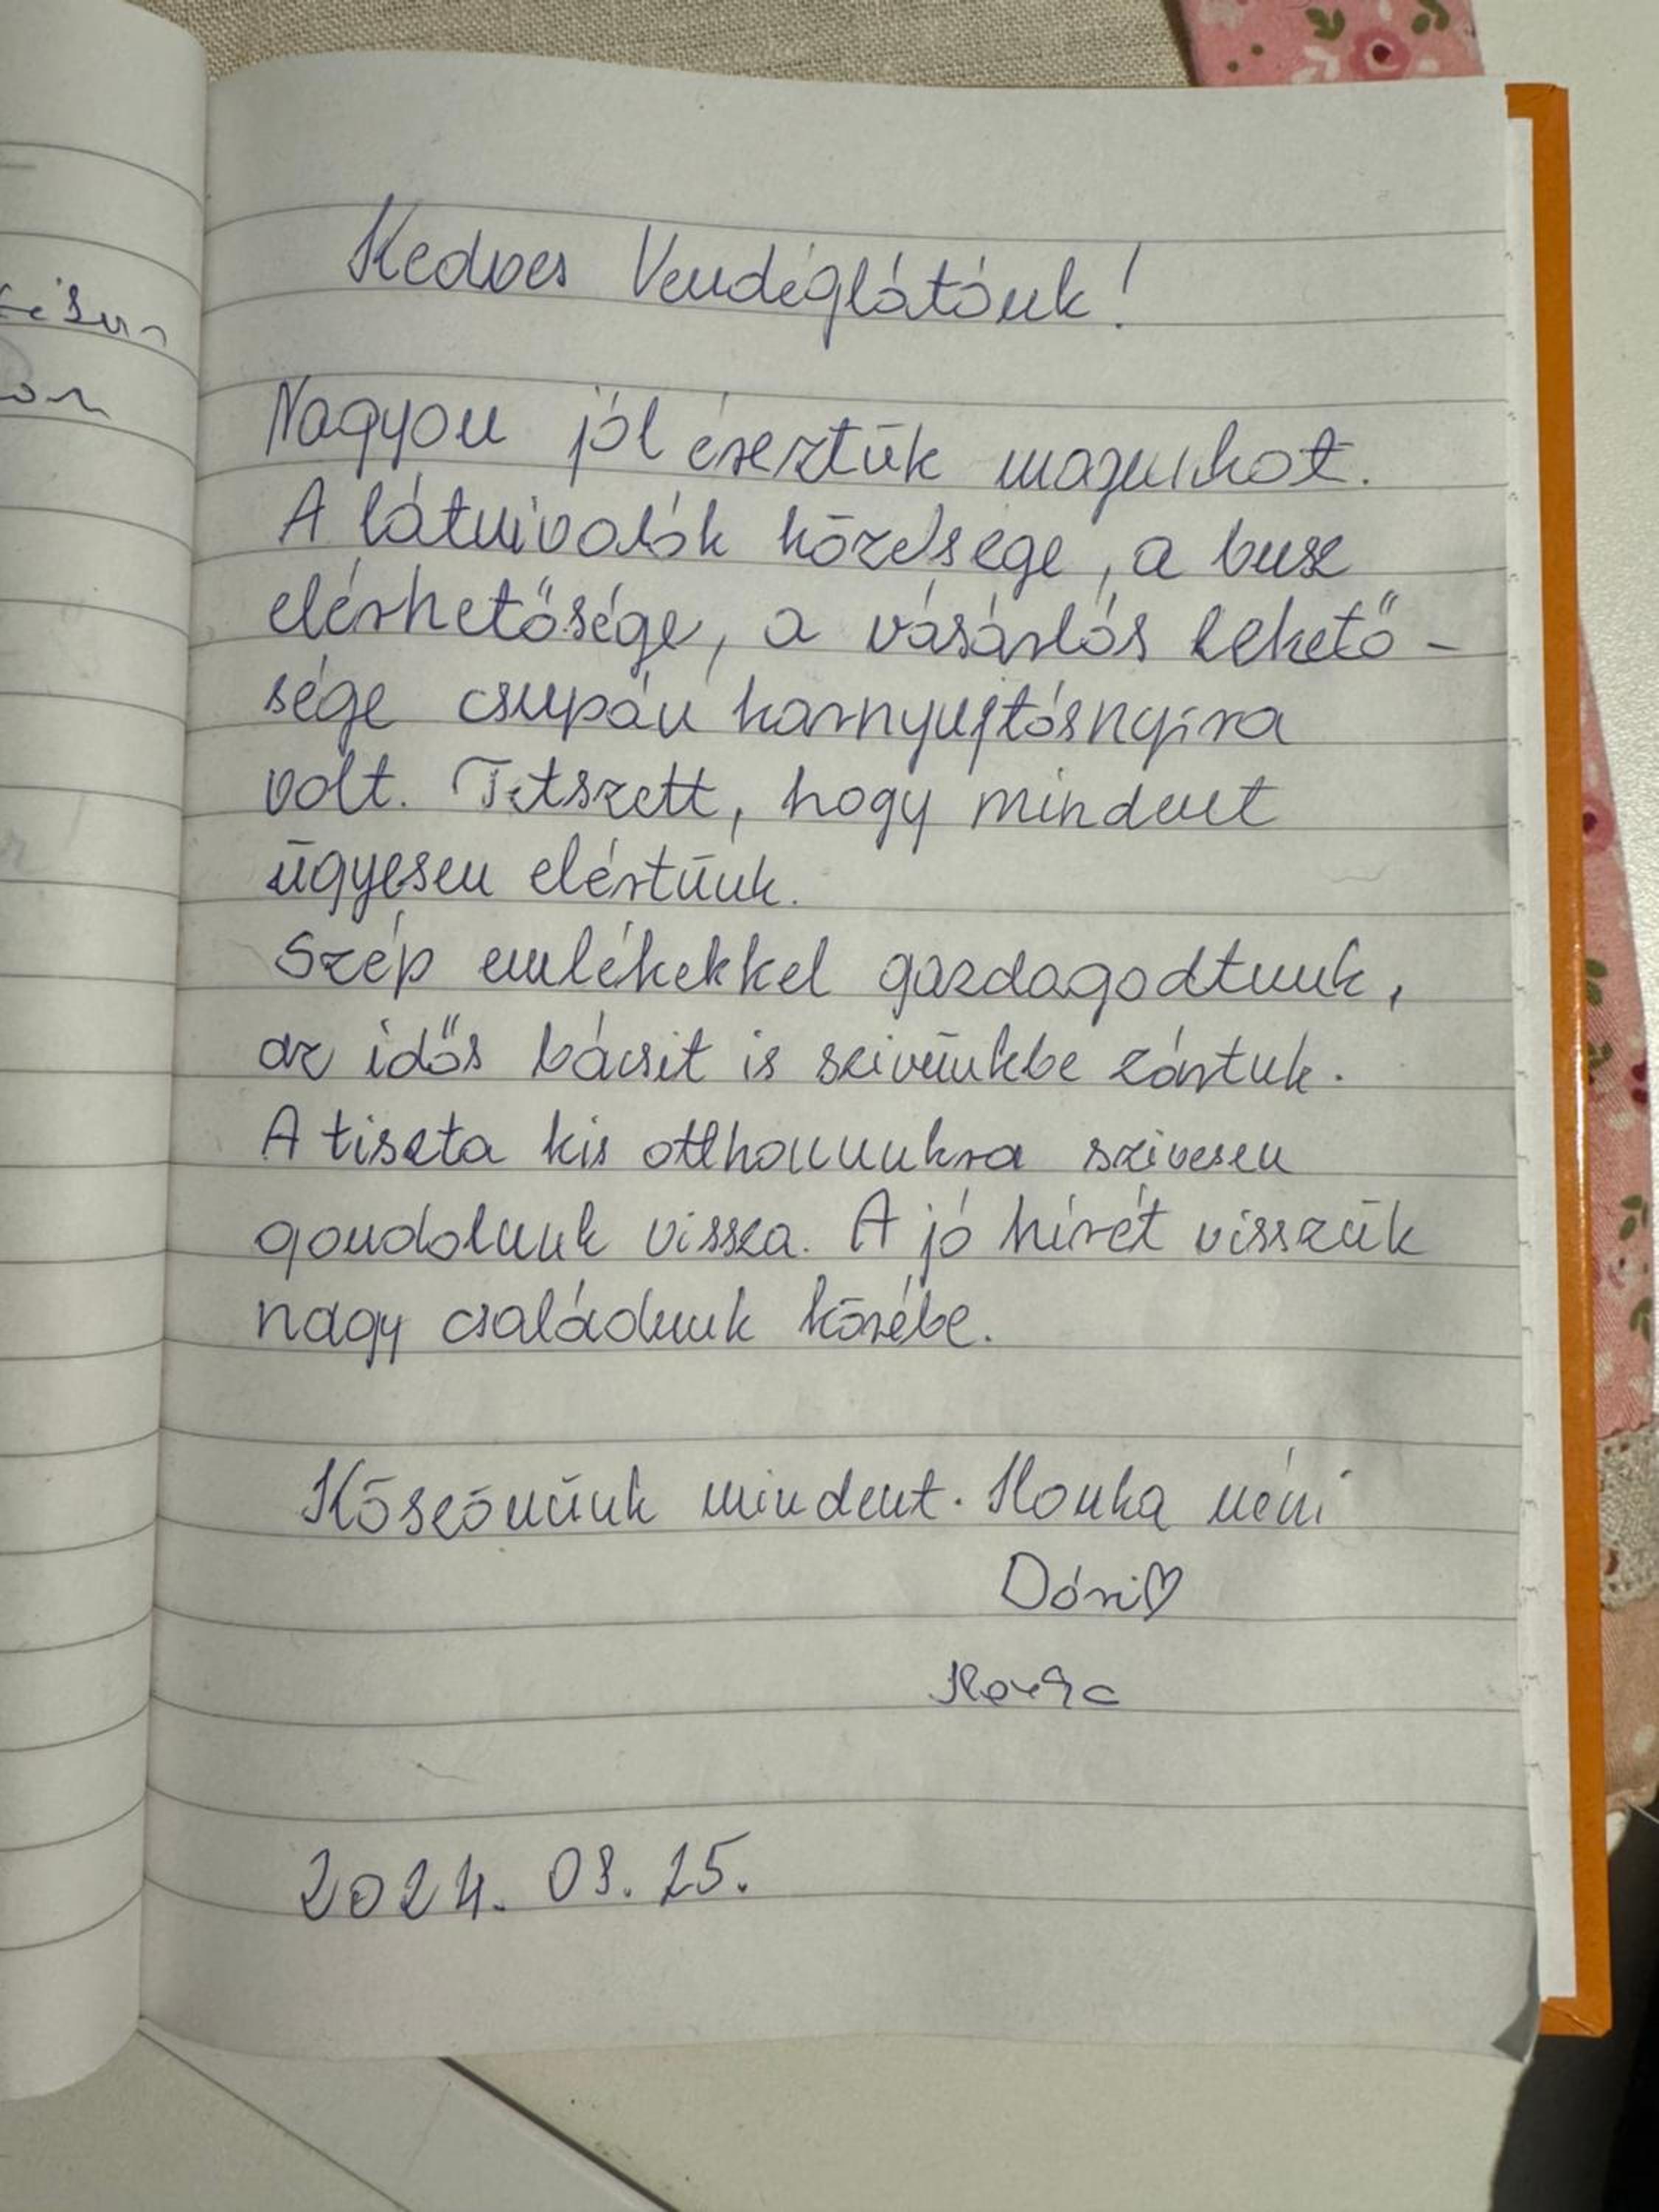 Kedves Vendéglátónk!
Nagyon jól éreztük magunkat.
A látnivalók közelsége, a busz
elérhetősége, a vásárlás lehető-
sége csupán karnyujtásnyira
volt. Tetszett, hogy mindent
ügyesen elértünk.
Szép emlékekkel gazdagodtunk,
az idős bácsit is szivünkbe zártuk.
A tiszta kis otthonunkra szivesen
gondolunk vissza. A jó hírét visszük
nagy családunk körébe.
Köszönünk mindent. Ilonka néni
Dóri♡
Ilonka
2024. 03. 25.